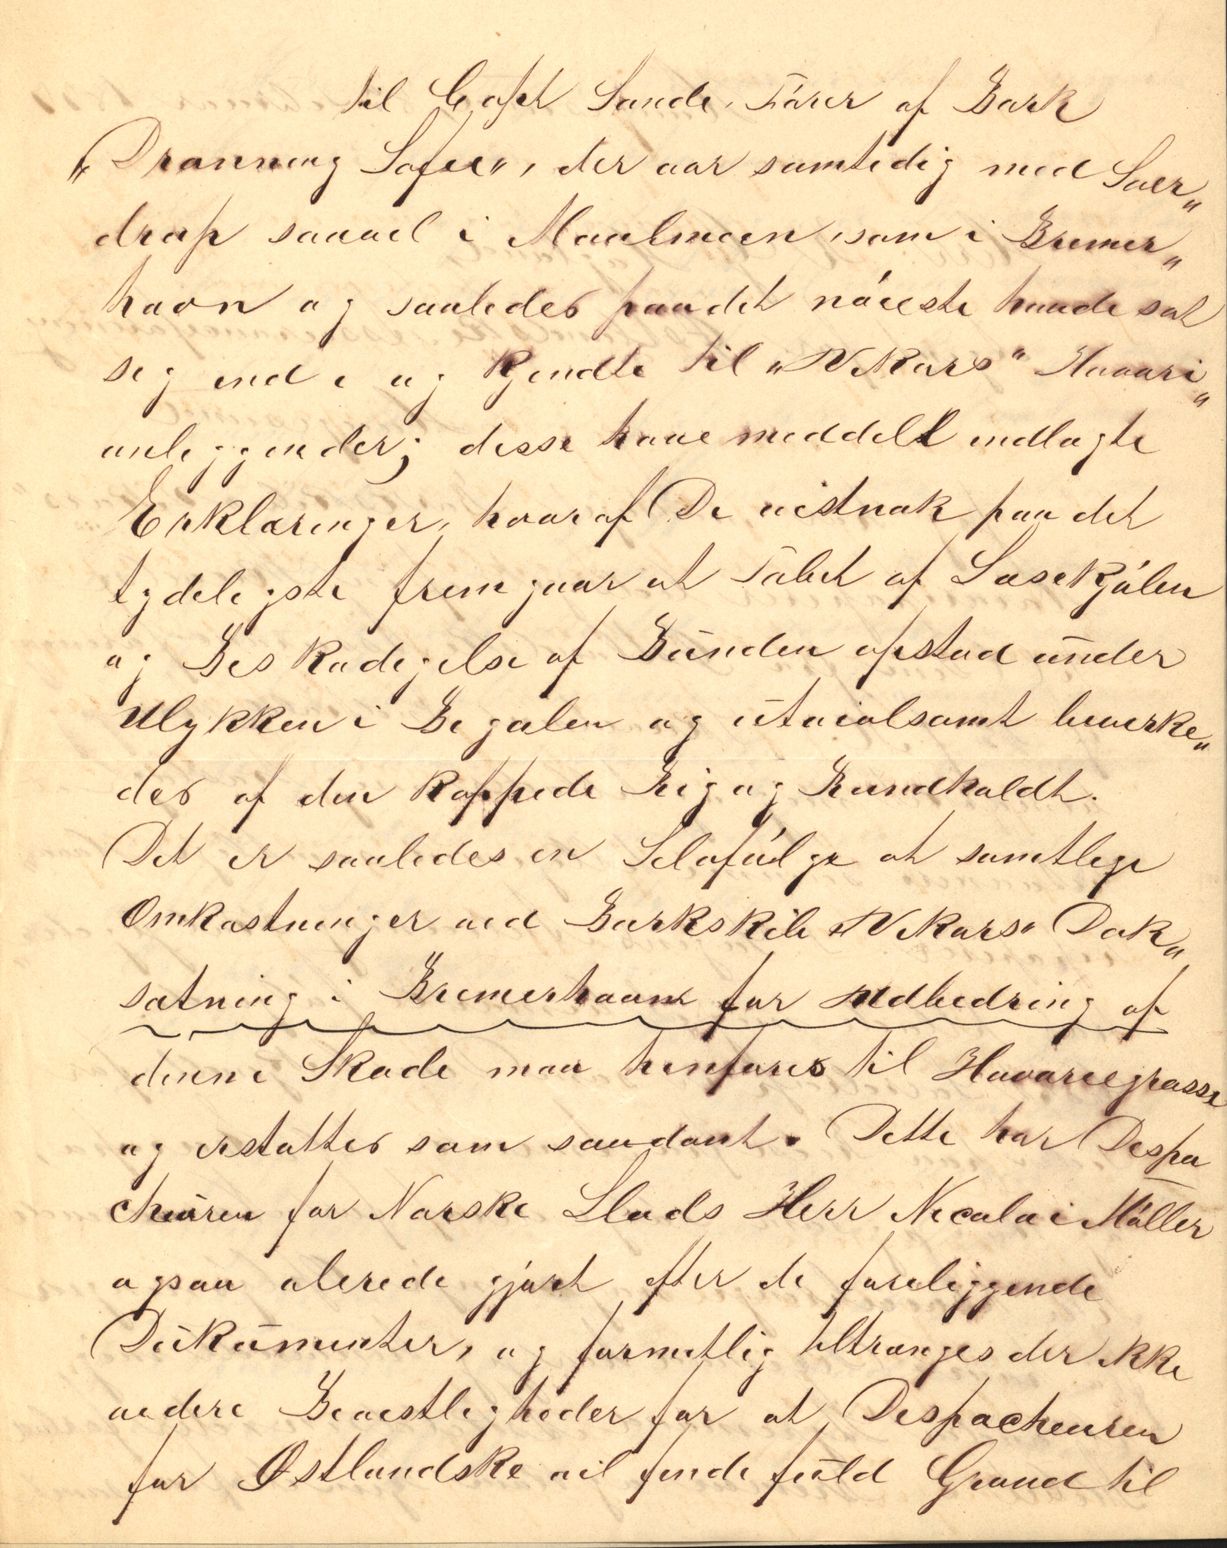 til Capt Sande, Förer af Bark
„Dronning Sofie", der var samtidig med Sver„
drup saavel i Moulmein, som i Bremer„
havn og saaledes paa det nöieste havde sat
sig ind i og kjendte til „Vikars" Havari„
anliggender; disse have meddelt indlagte
Erklæringer, hvoraf De vistnok paa det
tydeligste fremgaar at Tabet af Løsekjølen
og Beskadigelse af Bunden opstod under
Ulykken i Begalen og utvivlsomt bevirke„
des af den kappede Rig og Rundholdt.
Det er saaledes en Selvfölge at samtlige
Omkostninger ved Barkskib „Vikars" Dok„
sætning i Bremerhavn for Udbedring af
denne Skade maa henføres til Havariegrosse
og erstattes som saadant. Dette har Despa
cheuren for Norske Llods Herr Nicolai Möller
ogsaa alerede gjört efter de foreliggende
Dokumenter, og formentlig tiltrænges der ikke
videre Bevistligheder for at Despacheuren
for Østlandske vil finde fuld Grund til